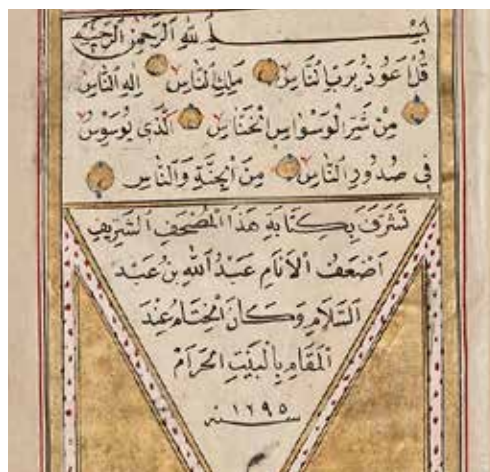 بِسْمِ اللهِ الرَّحْمٰنِ الرَّحِيْمِ
قُلْ اَعُوْذُ بِرَبِّ النَّاسِ مَلِكِ النَّاسِ اِلٰهِ النَّاسِ
مِنْ شَرِّ الْوَسْوَاسِ الْخَنَّاسِ الَّذِى يُوَسْوِسُ
فِى صُدُوْرِ النَّاسِ مِنَ الْجِنَّةِ وَالنَّاسِ
تَشَرَّفَ بِكِتَابَةِ هٰذَا الْمُصْحَفِ الشَّرِيْفِ
اَضْعَفُ الْاَنَامِ عَبْدُ اللهِ بْنُ عَبْدِ
السَّلَامِ وَكَانَ الْخِتَامُ عِنْدَ
الْمَقَامِ بِالْبَيْتِ الْحَرَامِ
سنه ١٦٩٥